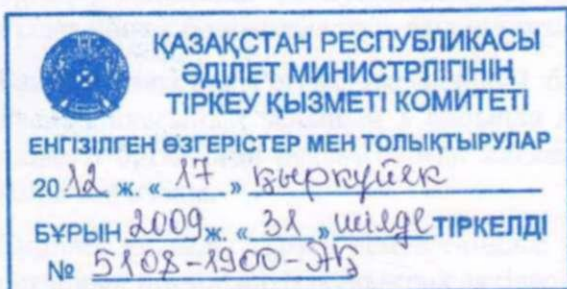 ҚАЗАҚСТАН РЕСПУБЛИКАСЫ
ӘДІЛЕТ МИНИСТРЛІГІНІҢ
ТІРКЕУ ҚЫЗМЕТІ КОМИТЕТІ
ЕНГІЗІЛГЕН ӨЗГЕРІСТЕР МЕН ТОЛЫҚТЫРУЛАР
20 12 ж. « 17 » қыркүйек
БҰРЫН 2009 ж. « 31 » шілде ТІРКЕЛДІ
№ 5108-1900-АҚ